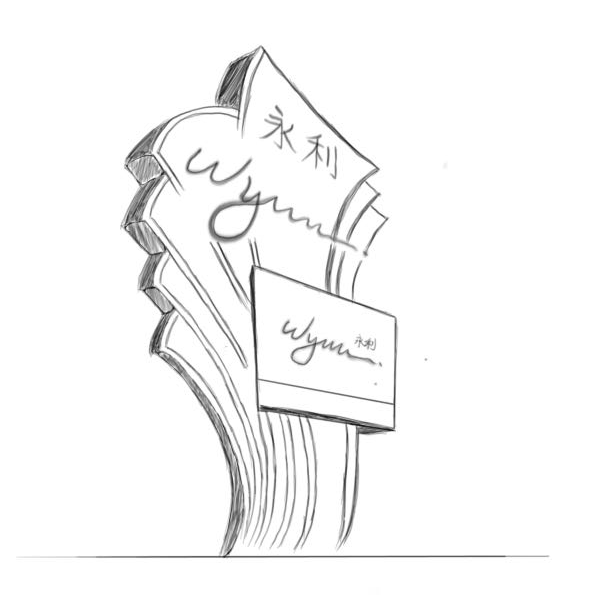 永利
Wynn.
Wynn. 永利